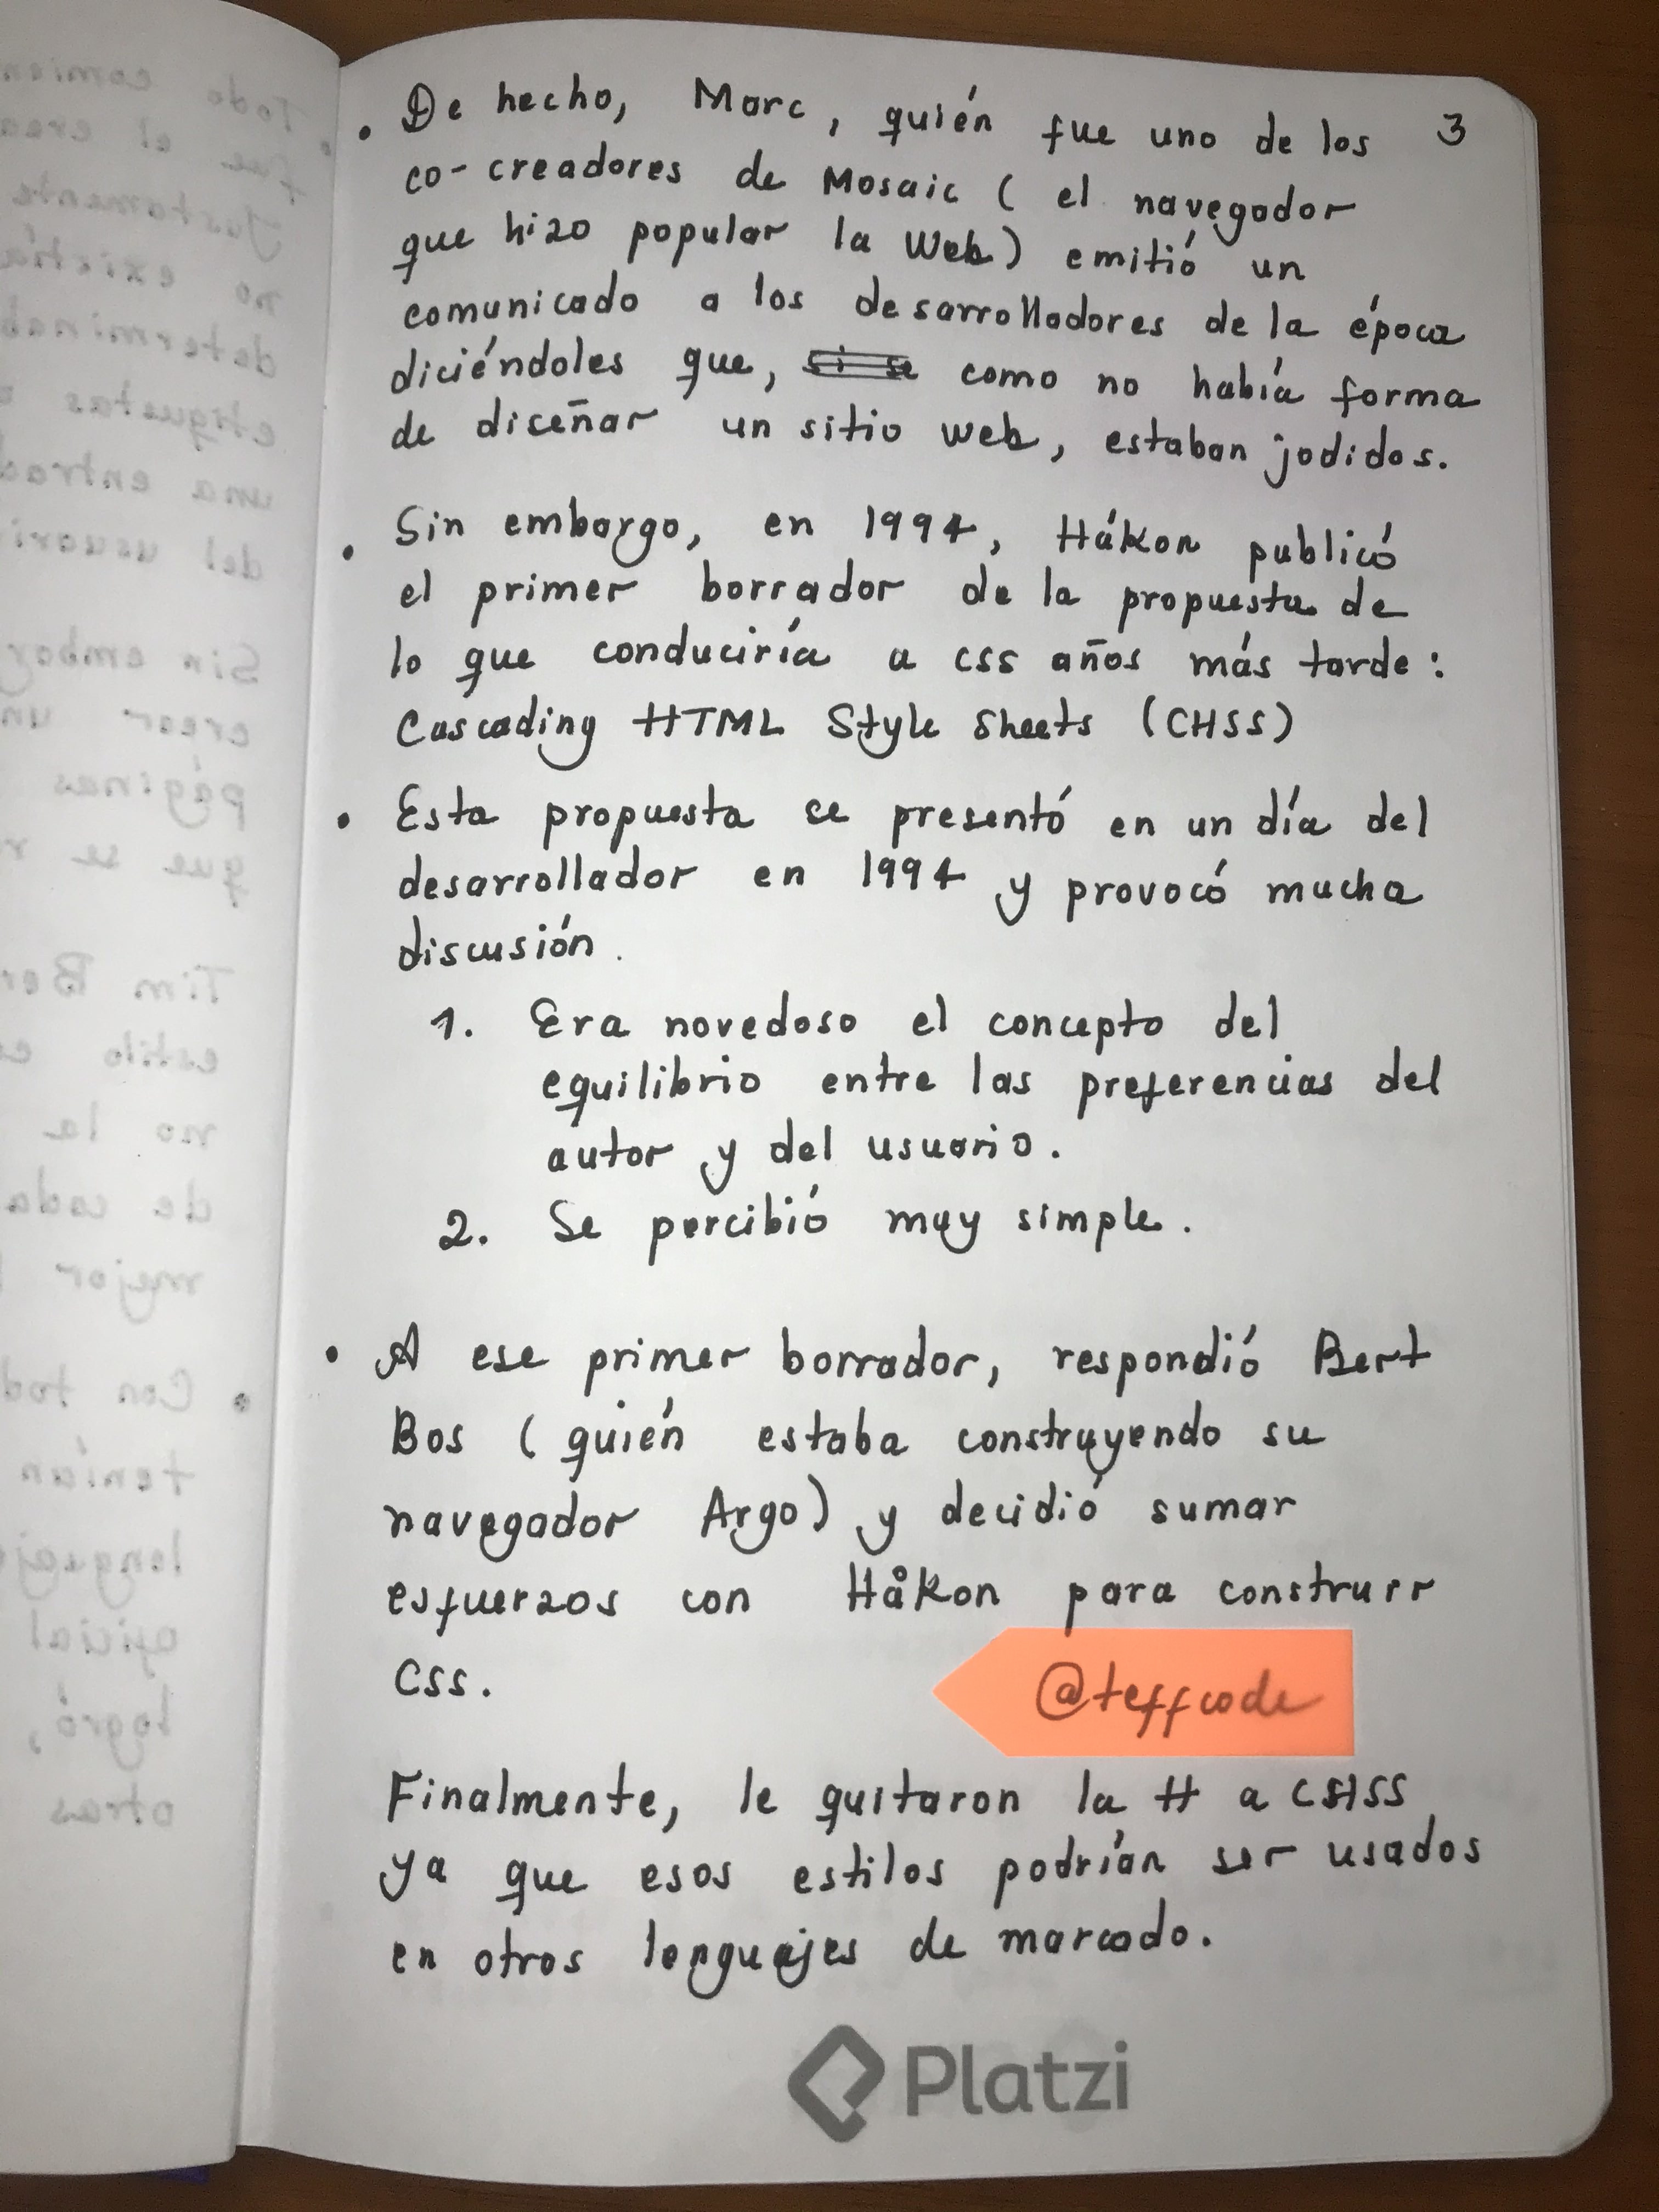 3
• De hecho, Marc, quién fue uno de los
co-creadores de Mosaic (el navegador
que hizo popular la Web) emitió un
comunicado a los desarrolladores de la época
diciéndoles que, si se como no había forma
de diseñar un sitio web, estaban jodidos.
• Sin embargo, en 1994, Hákon publicó
el primer borrador de la propuesta de
lo que conduciría a CSS años más tarde:
Cascading HTML Style Sheets (CHSS)
• Esta propuesta se presentó en un día del
desarrollador en 1994 y provocó mucha
discusión.
1. Era novedoso el concepto del
equilibrio entre las preferencias del
autor y del usuario.
2. Se percibió muy simple.
• A ese primer borrador, respondió Bert
Bos (quién estaba construyendo su
navegador Argo) y decidió sumar
esfuerzos con Håkon para construir
CSS.
@teffcode
Finalmente, le quitaron la H a CHSS
ya que esos estilos podrían ser usados
en otros lenguajes de marcado.
Platzi